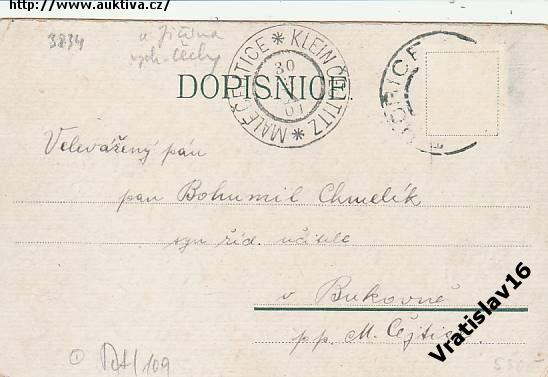 http://www.auktiva.cz/
3834
u Jičína
vých. Čechy
MALÉ ČEJTICE * KLEIN ČEJTITZ *
30
01
DOPISNICE.
Velevážený pán
pan Bohumil Chmelík
syn říd. učitele
v Bukovně
p.p. M. Čejtice
109
Vratislav16